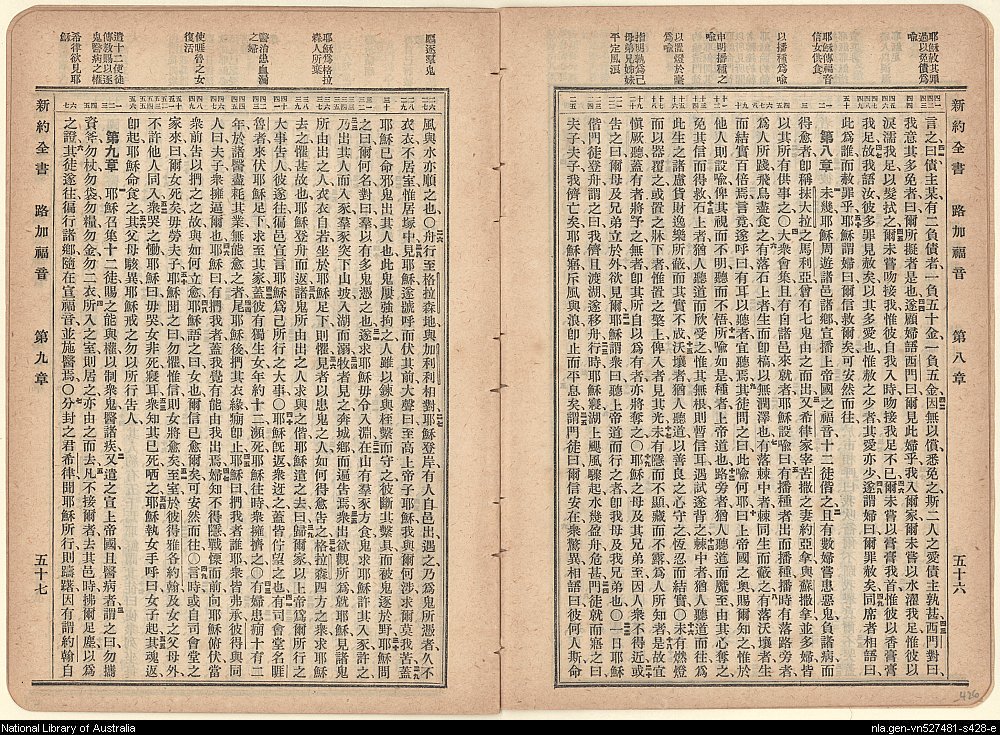 耶穌赦其罪
過以免債爲
喻
耶穌傳福音
信女供食
以播種爲喻
申明播種之
喻
以置燈於臺
爲喻
指明孰爲己
母弟兄姊妹
平定風浪
新約全書 路加福音 第八章 五十六
言之曰、債主某有二負債者、一負五十金、一負五金、因無以償、悉免之、斯二人之愛債主孰甚、西門對曰、
我意其多免者、曰、爾所擬者是也、遂顧婦語西門曰、爾見此婦乎、我入爾家、爾未嘗以水濯我足、惟彼以
淚濡我足、以髮拭之、爾未嘗吻接我、惟彼自我入時、吻接我足不已、爾未嘗以膏膏我首、惟彼以香膏膏
我足、故我語汝、彼多罪見赦矣、以其多愛也、惟赦之少者、其愛亦少、遂謂婦曰、爾罪赦矣、同席者相語曰、
此爲誰而赦罪乎、耶穌謂婦曰、爾信救爾矣、可安然而往、
第八章 未幾、耶穌周遊諸邑諸鄉、宣播上帝國之福音、十二徒偕之、且有數婦、嘗患惡鬼、負諸病、而
得愈者、卽稱抹大拉之馬利亞、曾有七鬼由之而出、又希律家宰苦撒之妻約亞拿、與蘇撒拿、並多婦、皆
以其所有供事之、○大衆會集、且有自諸邑來就者、耶穌設喻曰、有播種者、出而播種、播時、有落路旁者、
爲人所踐、飛鳥盡食之、有落石上者、生而卽槁、以無潤澤也、有落棘中者、棘同生而蔽之、有落沃壤者、生
而結實百倍焉、言竟、遂呼曰、有耳以聽者、宜聽焉、其徒問之曰、此喻何耶、曰、上帝國之奧、賜爾知之、惟於
他人則設喻、俾其視而不明、聽而不悟、所喻如是、種者、上帝道也、路旁者、猶人聽道而魔至、由其心奪之、
免其信而得救、石上者、猶人聽道而欣受之、惟其無根則暫信、耳遇試、遂背之、棘中者、猶人聽道而往、爲
此生之諸慮貨財逸樂所蔽、而其實不成、沃壤者、猶人聽道、以善良之心守之、恆忍而結實、○未有燃燈
而以器覆之、或置之牀下者、惟置之檠上、俾入者見其光、未有隱而不顯、藏而不露、爲人所知者、是故宜
愼厥聽、蓋有者將予之、無者卽其所自以爲有者亦將奪之、○耶穌母及其兄弟至、因人衆不得近、或
告之曰、爾母及兄弟立於外、欲見爾、耶穌謂衆曰、聽上帝道而行之者、卽我母及我兄弟也、○一日、耶穌
偕門徒登舟、謂之曰、我儕且渡湖、遂移舟、行時耶穌寢、湖上颶風驟起、水幾盈舟、危甚、門徒就而寤之曰、
夫子、夫子、我儕亡矣、耶穌寤、斥風與浪、卽止而平息矣、謂門徒曰、爾信安在、衆驚異、相語曰、彼何人斯、命
驅逐羣鬼
耶穌爲格拉
森人所棄
醫治患血漏
之婦
使睚魯之女
復活
遣十二使徒
傳教賜以逐
鬼醫病之權
希律欲見耶
穌
新約全書 路加福音 第九章 五十七
風與水、亦順之也、○舟行至格拉森地、與加利利相對、耶穌登岸、有人自邑出遇之、乃爲鬼所憑者、久不
衣衣、不居室、惟居塚中、見耶穌遂號呼、而伏其前、大聲曰、至高上帝子耶穌、我與爾何涉、求爾莫我苦、蓋
耶穌已命邪鬼出其人也、此鬼屢強拘之、人雖以鍊與桎繫而守之、彼斷其繫具、而被鬼逐於野、耶穌問
之曰、爾何名、對曰、羣、以有多鬼憑之也、遂求耶穌毋令入淵、在山有羣豕方食、鬼求耶穌許其入豕、許之、
乃出其人、而入豕、羣豕突下山坡、入湖而溺、牧者見之奔、城鄉而遍告焉、衆出欲觀所爲、就耶穌、見諸鬼
所由出之人、衣衣自若、坐於耶穌足下、則懼、見者以患鬼之人如何得愈告之、格拉森四方之衆求耶穌
去之、懼甚故也、耶穌登舟而返、諸鬼所由出之人求與之偕、耶穌遣之去、曰、歸爾家、以上帝爲爾所行之
大事告人、彼遂往、徧邑宣言耶穌爲己所行之大事、○耶穌旣返、衆迓之、蓋皆佇望之也、有司會堂名睚
魯者、來伏耶穌足下、求至其家、蓋彼有獨生女、年約十二、瀕死、耶穌往時、衆擁擠之、○有婦患血漏十有二
年、於諸醫盡耗其業、無能愈之者、尾耶穌後、捫其衣緣、血漏卽止、耶穌曰、捫我者誰耶、衆皆弗承、彼得與同
人曰、夫子、衆擁逼爾也、耶穌曰、有捫我者、蓋我覺有能由我出焉、婦知不得隱、戰慄而前、向耶穌俯伏、當
衆前、告以捫之之故、與如何立愈、耶穌語之曰、女也、爾信已愈爾矣、可安然而往、○言時、或自司會堂之
家來、曰、爾女死矣、毋勞夫子、耶穌聞之曰、勿懼、惟信、則女將愈矣、至室、於彼得雅各約翰及女之父母外、
不許他人同入、衆哭之慟、耶穌曰、毋哭、女非死、寢耳、衆知其已死、哂之、耶穌執女手呼曰、女子起、其魂返、
卽起、耶穌命食之、其父母駭異、耶穌戒之勿以所行告人、
第九章 耶穌召集十二徒、賜之能與權、以制衆鬼、醫諸疾、又遣之宣上帝國、且醫病者、謂之曰、勿攜
資斧、勿杖、勿袋、勿糧、勿金、勿二衣、所入之室則居之、亦由之而去、凡不接爾者、去其邑時、拂爾足塵、以爲
之證、其徒遂往、徧行諸鄉、隨在宣福音、並施醫焉、○分封之君希律聞耶穌所行、則躊躇、因有謂約翰自
426
National Library of Australia
nla.gen-vn527481-s428-e